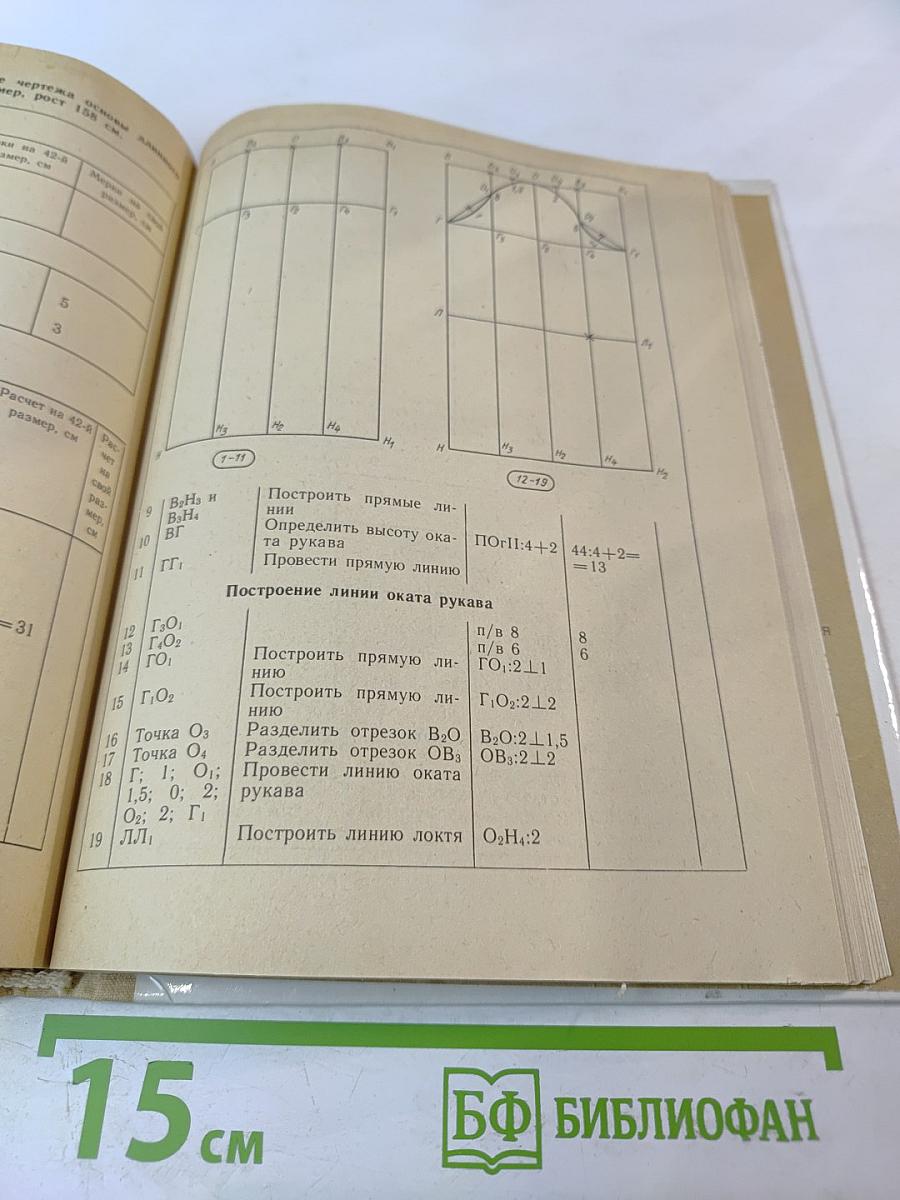 е чертежа основы длинного
мер, рост 158 см.
ки на 42-й
размер, см
Мерки на свой
размер, см
5
3
Расчет на 42-й
размер, см
Рас-
чет
на
свой
раз-
мер,
см
=31
Н₃ Н₂ Н₄ Н₁
1-11
Н Н₃ Н₂ Н₄ Н₂
12-19
9 В₂Н₃ и Построить прямые ли-
В₃Н₄ нии
10 ВГ Определить высоту ока- ПОгII:4+2 44:4+2=
та рукава =13
11 ГГ₁ Провести прямую линию
Построение линии оката рукава
12 Г₃О₁ п/в 8 8
13 Г₄О₂ п/в 6 6
14 ГО₁ Построить прямую ли- ГО₁:2⊥1
нию
15 Г₁О₂ Построить прямую ли- Г₁О₂:2⊥2
нию
16 Точка О₃ Разделить отрезок В₂О В₂О:2⊥1,5
17 Точка О₄ Разделить отрезок ОВ₃ ОВ₃:2⊥2
18 Г; 1; О₁; Провести линию оката
1,5; 0; 2; рукава
О₂; 2; Г₁
19 ЛЛ₁ Построить линию локтя О₂Н₄:2
15 см
БФ БИБЛИОФАН